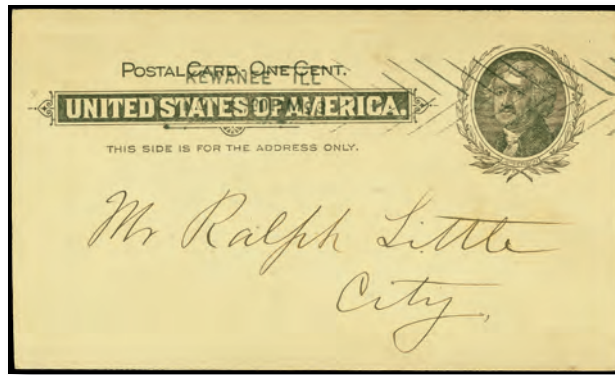 POSTAL CARD. ONE CENT.
KEWANEE ILL
UNITED STATES OF AMERICA.
THIS SIDE IS FOR THE ADDRESS ONLY.
Mr Ralph Little
City.